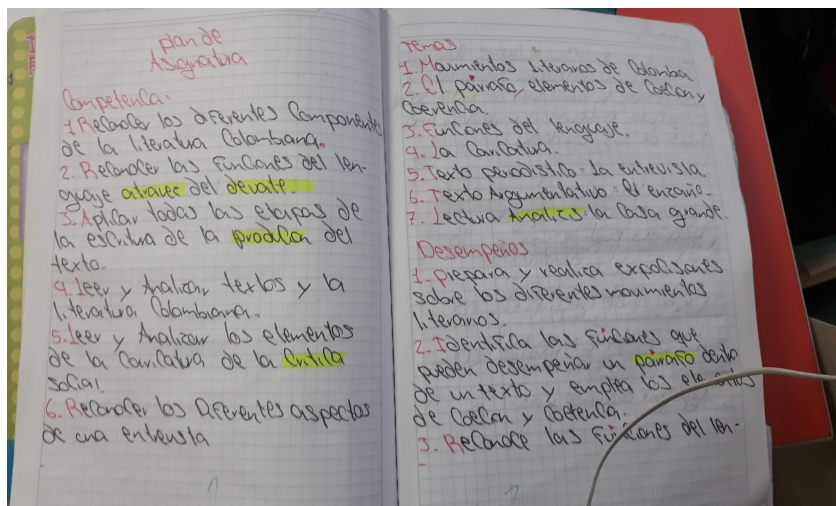 plan de
Asignatura
Competencia:
1. Reconocer los diferentes Componentes
de la literatura Colombiana.
2. Reconocer las Funciones del len-
guaje atravec del devate
3. Aplicar todas las etapas de
la escritura de la producon del
texto.
4. Leer y Analizar textos y la
literatura Colombiana.
5. Leer y Analizar los elementos
de la Caricatura de la Critica
social.
6. Reconocer los Diferentes aspectos
de una entrevista
Temas
1. Movimientos literarios de Colombia
2. El párrafo, elementos de Coecion y
Coerencia.
3. Funciones del lenguaje.
4. La Caricatura.
5. Texto periodistico = La entrevista.
6. Texto Argumentativo = El enzallo.
7. Lectura Analicis = la Casa grande.
Desempeños
1. prepara y realica expocisones
sobre los diferentes movimientos
literarios.
2. Identifica las funciones que
pueden desempeñar un párrafo dento
de un texto y emplea los elementos
de Coecion y Coetenca.
3. Reconoce las Funciones del len-